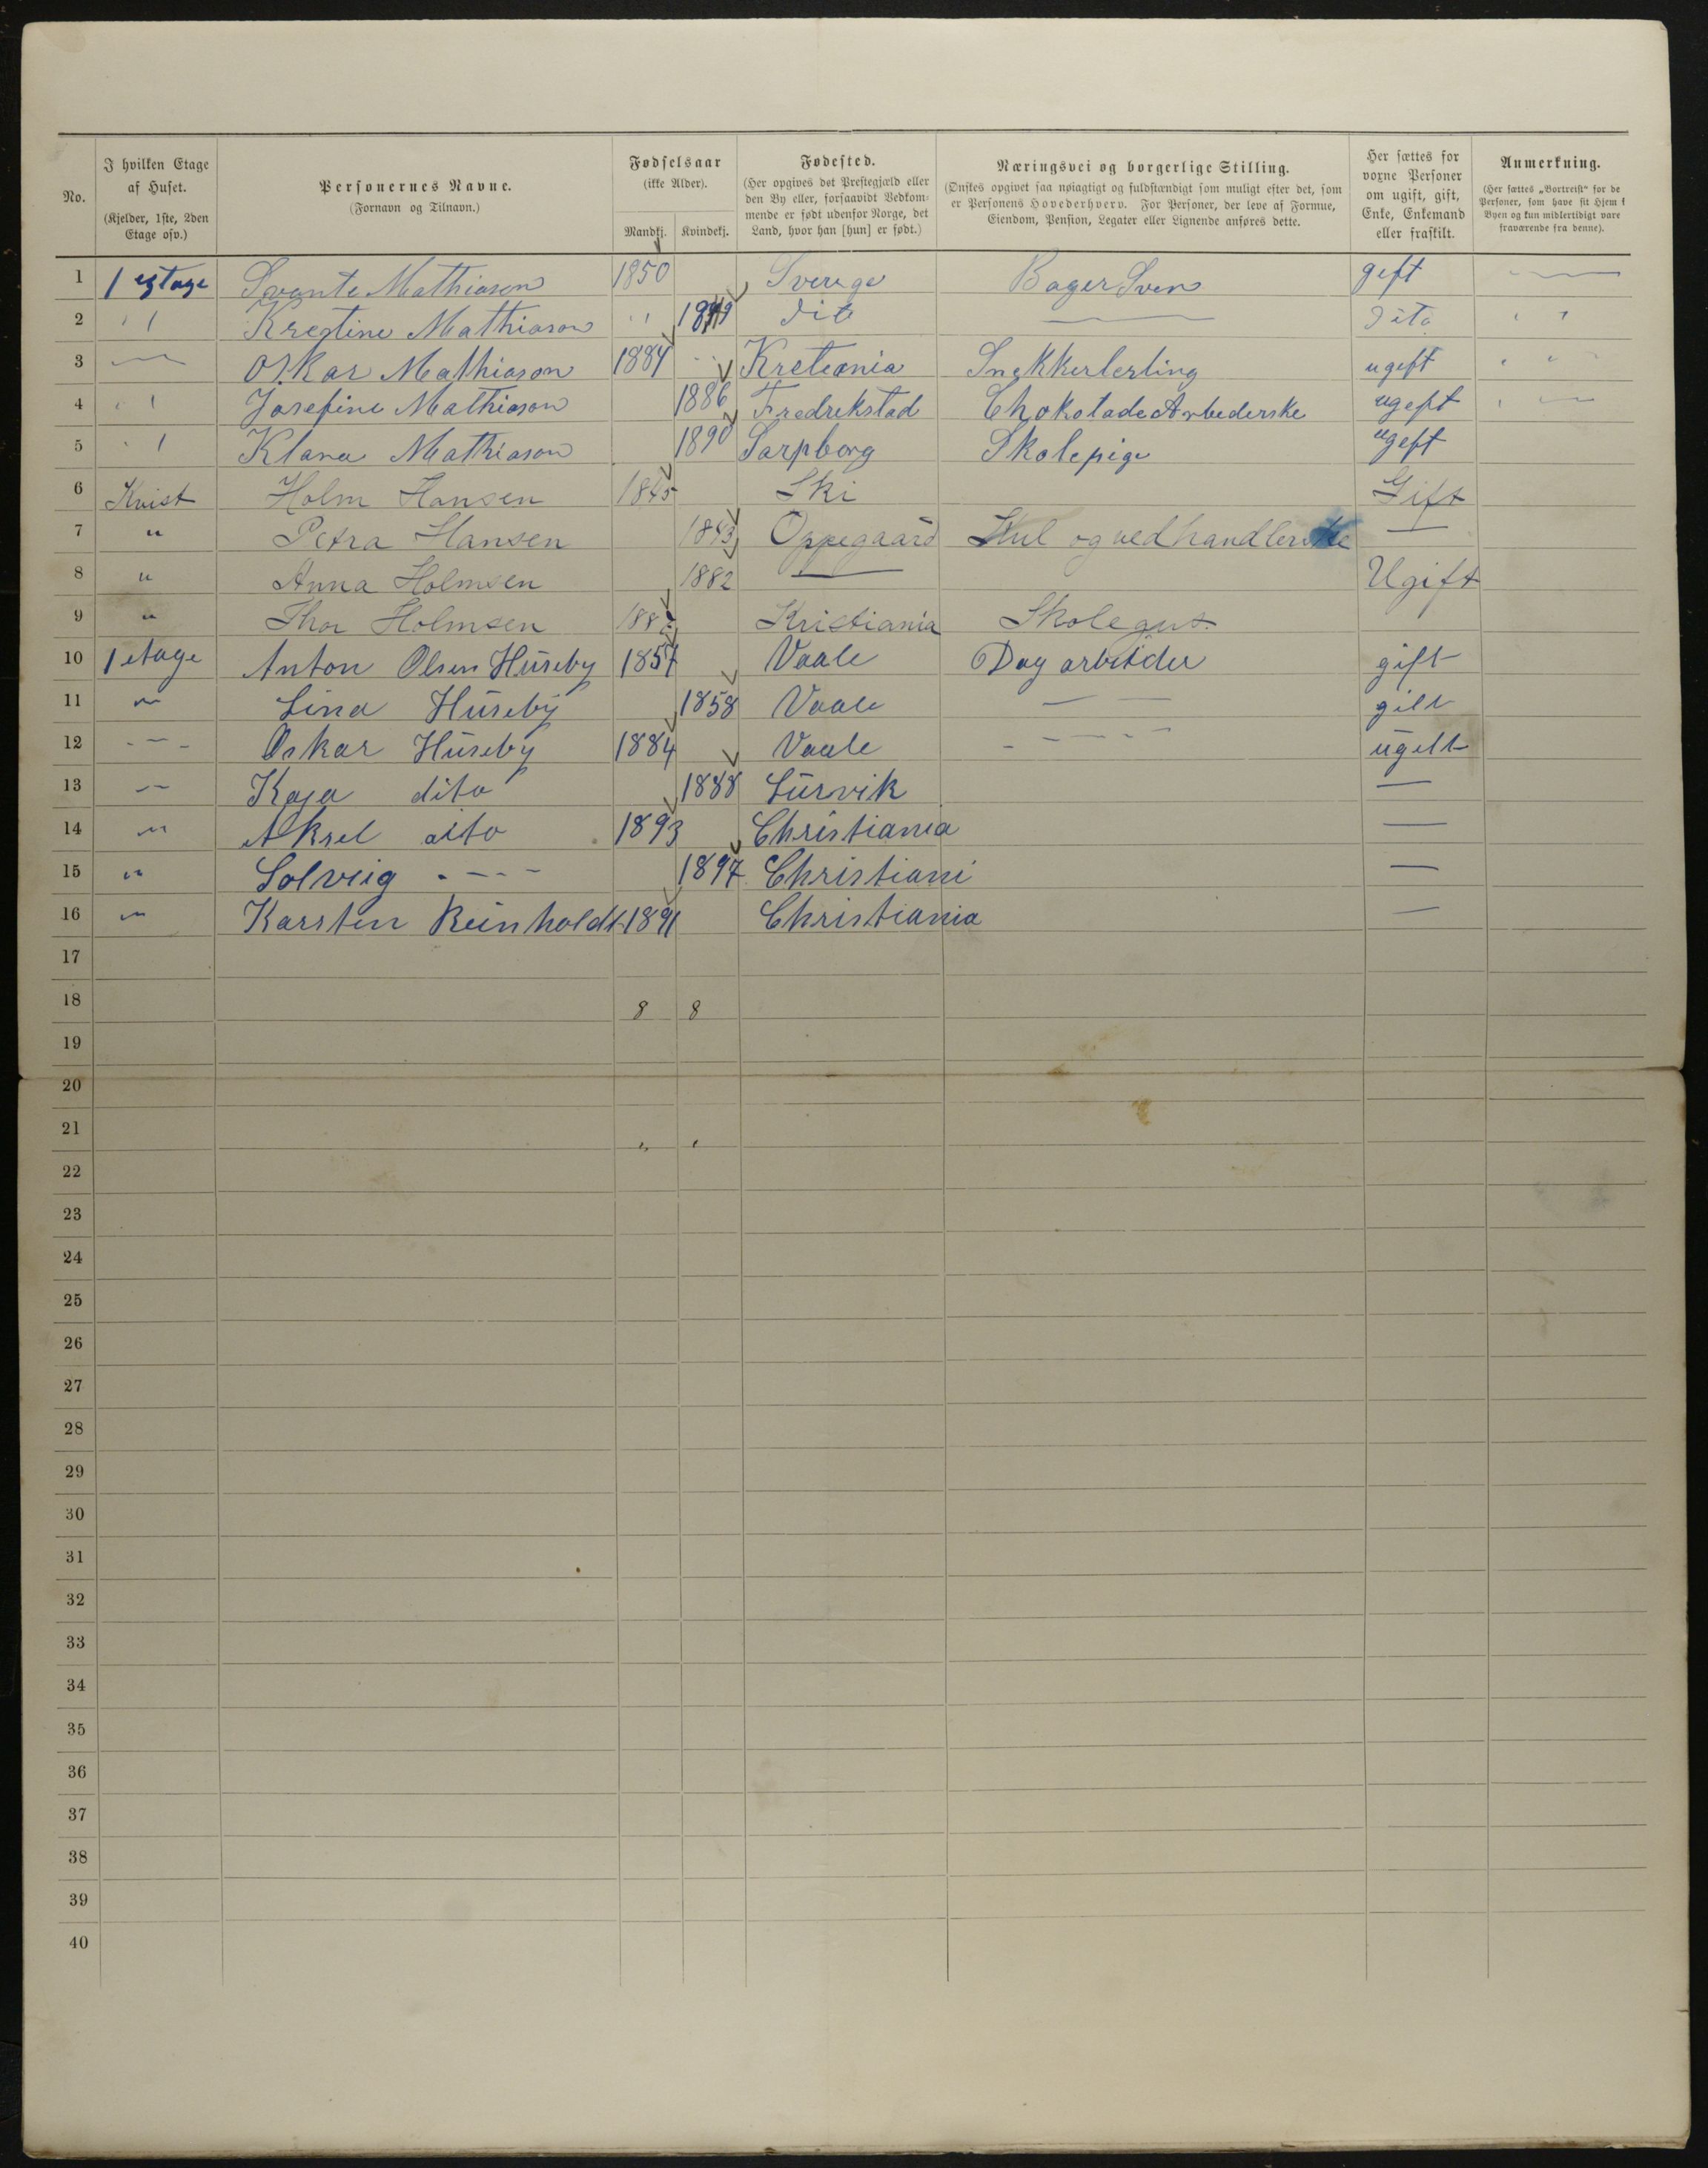 No. I hvilken Etage af Huset. (Kjelder, 1ste, 2den Etage osv.) Personernes Navne. (Fornavn og Tilnavn.) Fødselsaar (ikke Alder). Mandkj. Kvindekj. Fødested. (Her opgives det Prestegjæld eller den By eller, forsaavidt Vedkommende er født udenfor Norge, det Land, hvor han [hun] er født.) Næringsvei og borgerlige Stilling. (Ønskes opgivet saa nøiagtigt og fuldstændigt som muligt efter det, som er Personens Hovederhverv. For Personer, der leve af Formue, Eiendom, Pension, Legater eller Lignende anføres dette. Her sættes for voxne Personer om ugift, gift, Enke, Enkemand eller fraskilt. Anmerkning. (Her sættes „Bortreist“ for de Personer, som have sit Hjem i Byen og kun midlertidigt vare fraværende fra denne).
1 1 egtage Svante Mathiason 1850 Sverige Bager Sven geft —
2 " Kregtine Mathiason " 1849 dito — dito "
3 — Oskar Mathiason 1884 Kretiania Snekkerlerling ugeft "
4 " Josefine Mathiason 1886 Fredrekstad Chokolade Arbederske ugeft "
5 " Klara Mathiason 1890 Sarpborg Skolepige ugeft
6 Kvist Holm Hansen 1845 Ski Gift
7 " Petra Hansen 1843 Oppegaard Kul og vedhandlerske —
8 " Anna Holmsen 1882 — Ugift
9 " Thor Holmsen Kristiania Skolegut.
10 1 etage Anton Olsen Huseby 1857 Vaale Dagarbeider gift
11 " Lina Huseby 1858 Vaale — — gift
12 - - - Oskar Huseby 1884 Vaale - - - - - ugift
13 " Kaja dito 1888 Lürvik —
14 " Aksel dito 1893 Christiania —
15 " Solveig - - - - 1897 Christiani —
16 " Karsten Reinholdt 1891 Christiania —
17
18 8 8
19
20
21 " "
22
23
24
25
26
27
28
29
30
31
32
33
34
35
36
37
38
39
40